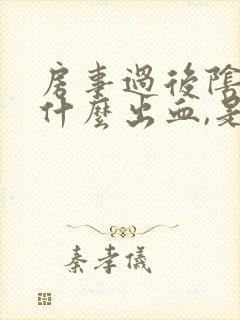 房事過後陰
什麼出血,是
秦孝儀